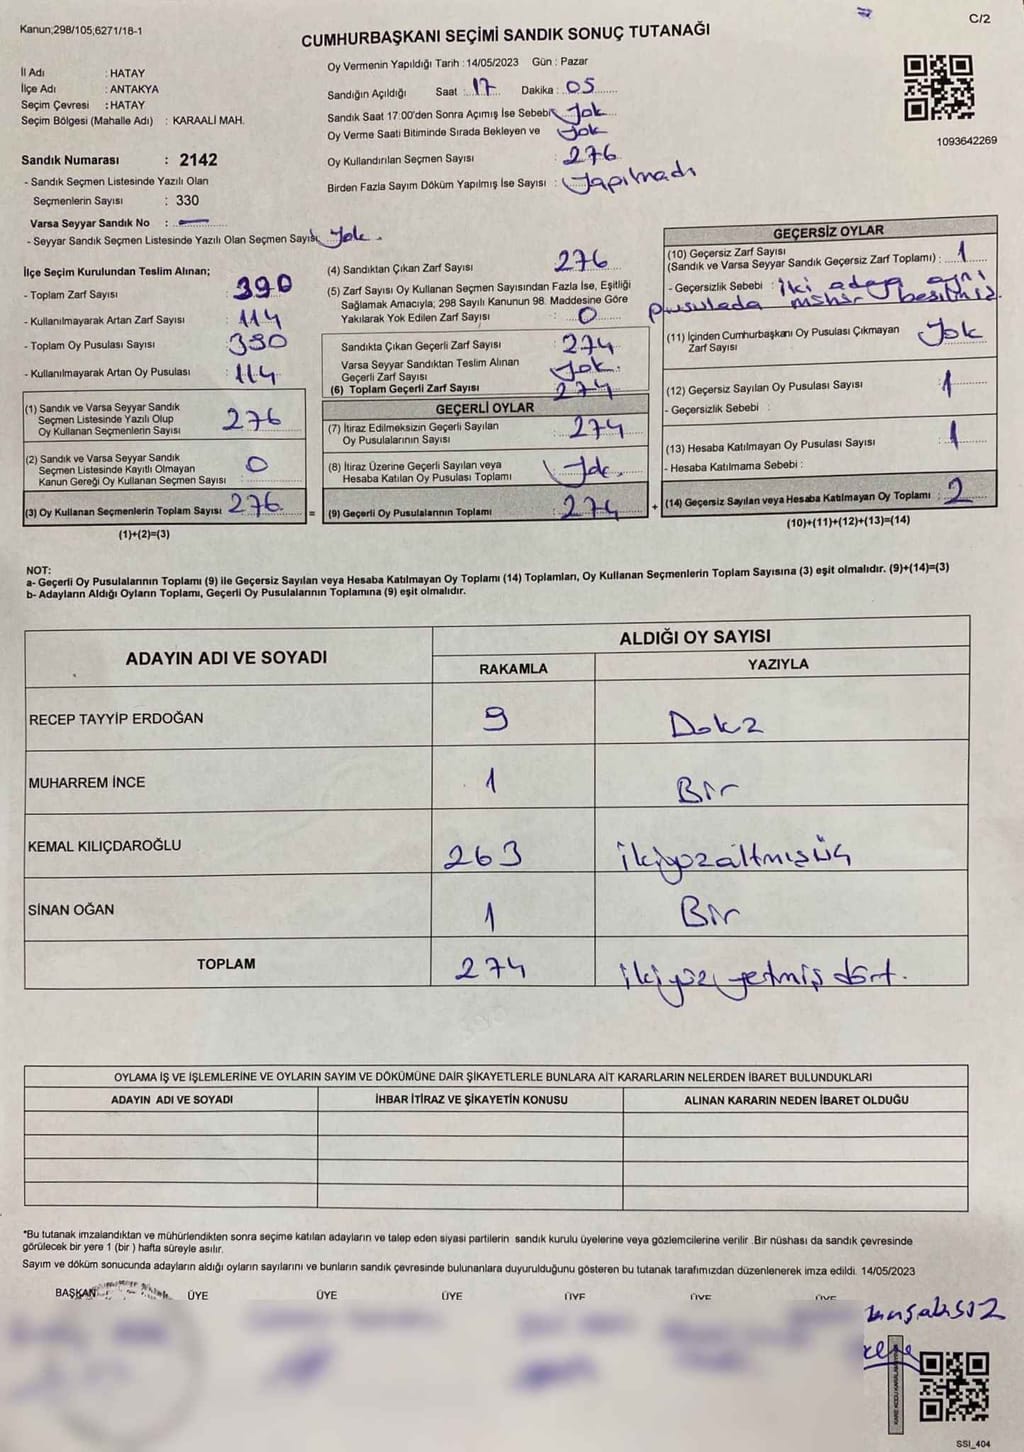 Kanun;298/105,6271/18-1
C/2
CUMHURBAŞKANI SEÇİMİ SANDIK SONUÇ TUTANAĞI
İl Adı : HATAY
İlçe Adı : ANTAKYA
Seçim Çevresi : HATAY
Seçim Bölgesi (Mahalle Adı) : KARAALİ MAH.
Sandık Numarası : 2142
- Sandık Seçmen Listesinde Yazılı Olan
Seçmenlerin Sayısı : 330
Varsa Seyyar Sandık No : —
- Seyyar Sandık Seçmen Listesinde Yazılı Olan Seçmen Sayısı: Yok.
Oy Vermenin Yapıldığı Tarih : 14/05/2023 Gün : Pazar
Sandığın Açıldığı Saat : 17 Dakika : 05
Sandık Saat 17:00'den Sonra Açımış İse Sebebi: Yok
Oy Verme Saati Bitiminde Sırada Bekleyen ve Yok
Oy Kullandırılan Seçmen Sayısı : 276
Birden Fazla Sayım Döküm Yapılmış İse Sayısı : Yapılmadı
1093642269
İlçe Seçim Kurulundan Teslim Alınan;
- Toplam Zarf Sayısı : 390
- Kullanılmayarak Artan Zarf Sayısı : 114
- Toplam Oy Pusulası Sayısı : 390
- Kullanılmayarak Artan Oy Pusulası : 114
(1) Sandık ve Varsa Seyyar Sandık
Seçmen Listesinde Yazılı Olup
Oy Kullanan Seçmenlerin Sayısı : 276
(2) Sandık ve Varsa Seyyar Sandık
Seçmen Listesinde Kayıtlı Olmayan
Kanun Gereği Oy Kullanan Seçmen Sayısı : 0
(3) Oy Kullanan Seçmenlerin Toplam Sayısı : 276
(1)+(2)=(3)
=
(4) Sandıktan Çıkan Zarf Sayısı : 276
(5) Zarf Sayısı Oy Kullanan Seçmen Sayısından Fazla İse, Eşitliği
Sağlamak Amacıyla; 298 Sayılı Kanunun 98. Maddesine Göre
Yakılarak Yok Edilen Zarf Sayısı : 0
Sandıkta Çıkan Geçerli Zarf Sayısı : 274
Varsa Seyyar Sandıktan Teslim Alınan
Geçerli Zarf Sayısı : Yok.
(6) Toplam Geçerli Zarf Sayısı : 274
GEÇERLİ OYLAR
(7) İtiraz Edilmeksizin Geçerli Sayılan
Oy Pusulalarının Sayısı : 274
(8) İtiraz Üzerine Geçerli Sayılan veya
Hesaba Katılan Oy Pusulası Toplamı : Yok.
(9) Geçerli Oy Pusulalarının Toplamı : 274
+
GEÇERSİZ OYLAR
(10) Geçersiz Zarf Sayısı
(Sandık ve Varsa Seyyar Sandık Geçersiz Zarf Toplamı) : 1
- Geçersizlik Sebebi : iki adaya aynı
pusulada mühür
(11) İçinden Cumhurbaşkanı Oy Pusulası Çıkmayan
Zarf Sayısı : Yok
(12) Geçersiz Sayılan Oy Pusulası Sayısı : 1
- Geçersizlik Sebebi :
(13) Hesaba Katılmayan Oy Pusulası Sayısı : 1
- Hesaba Katılmama Sebebi :
(14) Geçersiz Sayılan veya Hesaba Katılmayan Oy Toplamı : 2
(10)+(11)+(12)+(13)=(14)
NOT:
a- Geçerli Oy Pusulalarının Toplamı (9) ile Geçersiz Sayılan veya Hesaba Katılmayan Oy Toplamı (14) Toplamları, Oy Kullanan Seçmenlerin Toplam Sayısına (3) eşit olmalıdır. (9)+(14)=(3)
b- Adayların Aldığı Oyların Toplamı, Geçerli Oy Pusulalarının Toplamına (9) eşit olmalıdır.
ADAYIN ADI VE SOYADI
ALDIĞI OY SAYISI
RAKAMLA YAZIYLA
RECEP TAYYİP ERDOĞAN 9 Dokz
MUHARREM İNCE 1 Bir
KEMAL KILIÇDAROĞLU 263 ikiyozaltmışüç
SİNAN OĞAN 1 Bir
TOPLAM 274 ikiyüz yetmiş dört.
OYLAMA İŞ VE İŞLEMLERİNE VE OYLARIN SAYIM VE DÖKÜMÜNE DAİR ŞİKAYETLERLE BUNLARA AİT KARARLARIN NELERDEN İBARET BULUNDUKLARI
ADAYIN ADI VE SOYADI İHBAR İTİRAZ VE ŞİKAYETİN KONUSU ALINAN KARARIN NEDEN İBARET OLDUĞU
*Bu tutanak imzalandıktan ve mühürlendikten sonra seçime katılan adayların ve talep eden siyasi partilerin sandık kurulu üyelerine veya gözlemcilerine verilir .Bir nüshası da sandık çevresinde
görülecek bir yere 1 (bir ) hafta süreyle asılır.
Sayım ve döküm sonucunda adayların aldığı oyların sayılarını ve bunların sandık çevresinde bulunanlara duyurulduğunu gösteren bu tutanak tarafımızdan düzenlenerek imza edildi. 14/05/2023
BAŞKAN ÜYE ÜYE ÜYE ÜYE ÜYE ÜYE
SSI_404